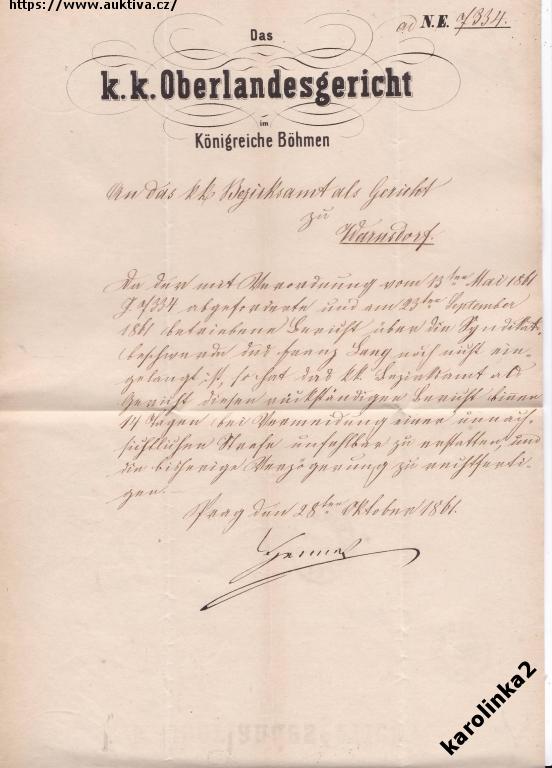 https://www.auktiva.cz/
ad N.E. 7334.
Das
k. k. Oberlandesgericht
im
Königreiche Böhmen
An das k k Bezirksamt als Gericht
zu
Warnsdorf.
Da der mit Verordnung vom 13ten Mai 1861
Z 7334 abgeforderte und am 23ten September
1861 betriebene Bericht über die Syndikats-
beschwerde des Franz Lang noch nicht ein-
gelangt ist, so hat das kk. Bezirksamt als
Gericht diesen rückständigen Bericht binnen
14 Tagen bei Vermeidung einer unnach-
sichtlichen Strafe unfehlbar zu erstatten, und
die bisherige Verzögerung zu rechtferti-
gen.
Prag den 28ten Oktober 1861.
karolinka2